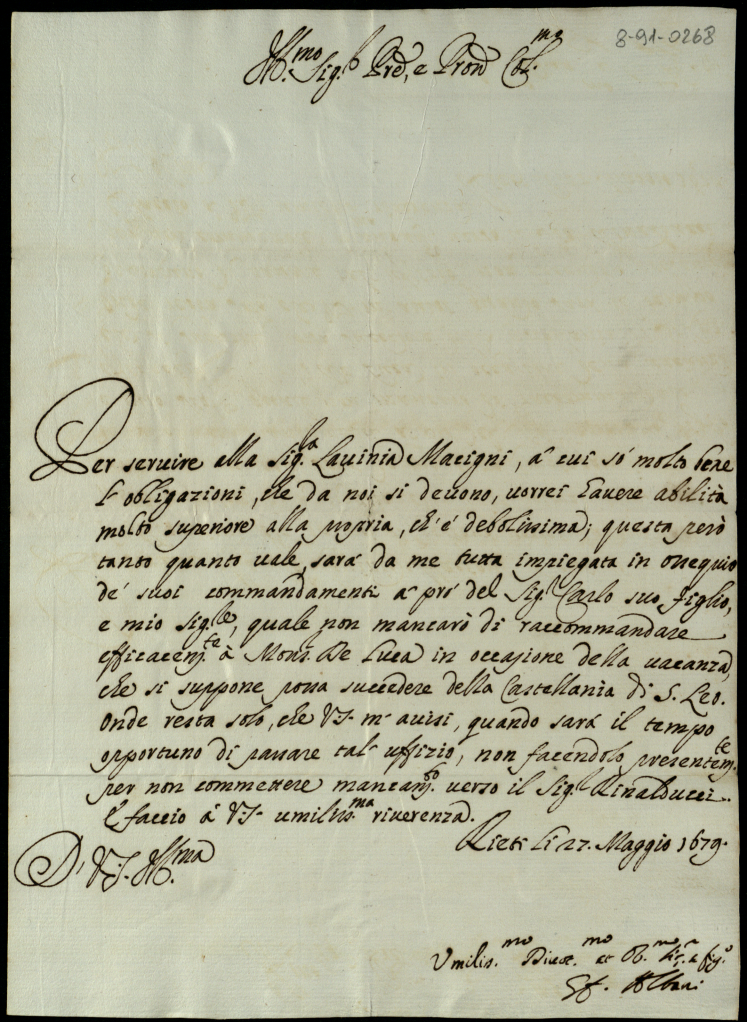 8-91-0268
Ill.mo Sig.r Prõe, e Pron Col.mo
Per seruire alla Sig.ra Lauinia Macigni, à cui sò molto bene
l'obligazioni, che da noi si deuono, uorrei hauere abilità
molto superiore alla propria, ch'è debolissima; questa però
tanto quanto uale, sarà da me tutta impiegata in ossequio
de' suoi commandamenti à prò del Sig.r Carlo suo figlio,
e mio Sig.re, quale non mancarò di raccommandare
efficacem.te à Mons. De Luca in occasione della uacanza,
che si suppone possa succedere della Castellania di S. Leo.
Onde resta solo, che VS. m'auisi, quando sarà il tempo
opportuno di passare tal' uffizio, non facendolo presentem.te
per non commettere mancam.to uerso il Sig.r Rinalducci.
E faccio à VS. umiliss.ma riuerenza.
Rieti li 27. Maggio 1679.
D. VS. Ill.ma
Umilis.mo Diuot.mo et Ob.mo
Albani